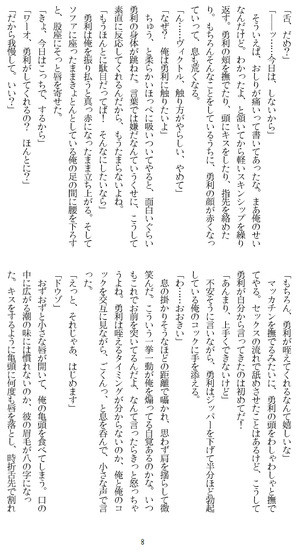 「舌、だめ?」
「――ッ……今日は、しないから」
そういえば、おしりが痛いって書いてあったな。まあ俺のせい
なんだけど。わかったよ、と頷いてから軽いスキンシップを繰り
返す。勇利の頬を撫でたり、頭にキスをしたり、指先を絡めた
り。もちろんそんなことをしているうちに、勇利の顔が赤くなっ
ていって、息も荒くなる。
「ん……ヴィクトル、触り方がやらしい、やめて」
「なぜ? 俺は勇利に触りたいよ」
ちゅう、と柔らかいほっぺに吸いついてやると、面白いぐらい
勇利の身体が跳ねた。言葉では嫌だなんていうくせに、こうして
素直に反応してくれるんだから、もうたまらないよね。
「もうほんとに駄目だってば! そんなにしたいなら」
勇利は俺を振り払うと真っ赤になったまま立ち上がる。そして
ソファに座ったままきょとんとしている俺の足の間に腰を下ろす
と、股座にそっと唇を寄せた。
「きょ、今日はこっちで、するから」
「ワーオ、勇利がしてくれるの? ほんとに?」
「だから我慢して、いい?」
「もちろん、勇利が咥えてくれるなんて嬉しいな」
マッカチンを撫でるみたいに、勇利の頭をわしゃわしゃと撫で
てやる。セックスの流れで舐めさせたことはあるけど、こうして
勇利が自分から言ってきたのは初めてだ!
「あんまり、上手くできないけど」
不安そうに言いながら、勇利はジッパーを下げて半分ほど勃起
している俺のコックに手を添える。
「わ……おおきい」
息の掛かりそうなほどの距離で囁かれ、思わず肩を揺らして微
笑んだ。こういう一挙一動が俺を煽ってる自覚あるのかな。いつ
もこれでお前を突いてるんだよ、なんて言ったらきっと怒っちゃ
うよね。勇利は咥えるタイミングが分からないのか、俺と俺のコ
ックを交互に見ながら、ごくんっ、と息を呑んで、小さな声で言
った。
「えっと、それじゃあ、はじめます」
「ドウゾ」
おずおずと小さな唇が開いて、俺の亀頭を食べてしまう。口の
中に広がる潮の味には慣れないのか、彼の眉毛が八の字になっ
た。キスをするように亀頭に何度も唇を落とし、時折舌先で割れ
8